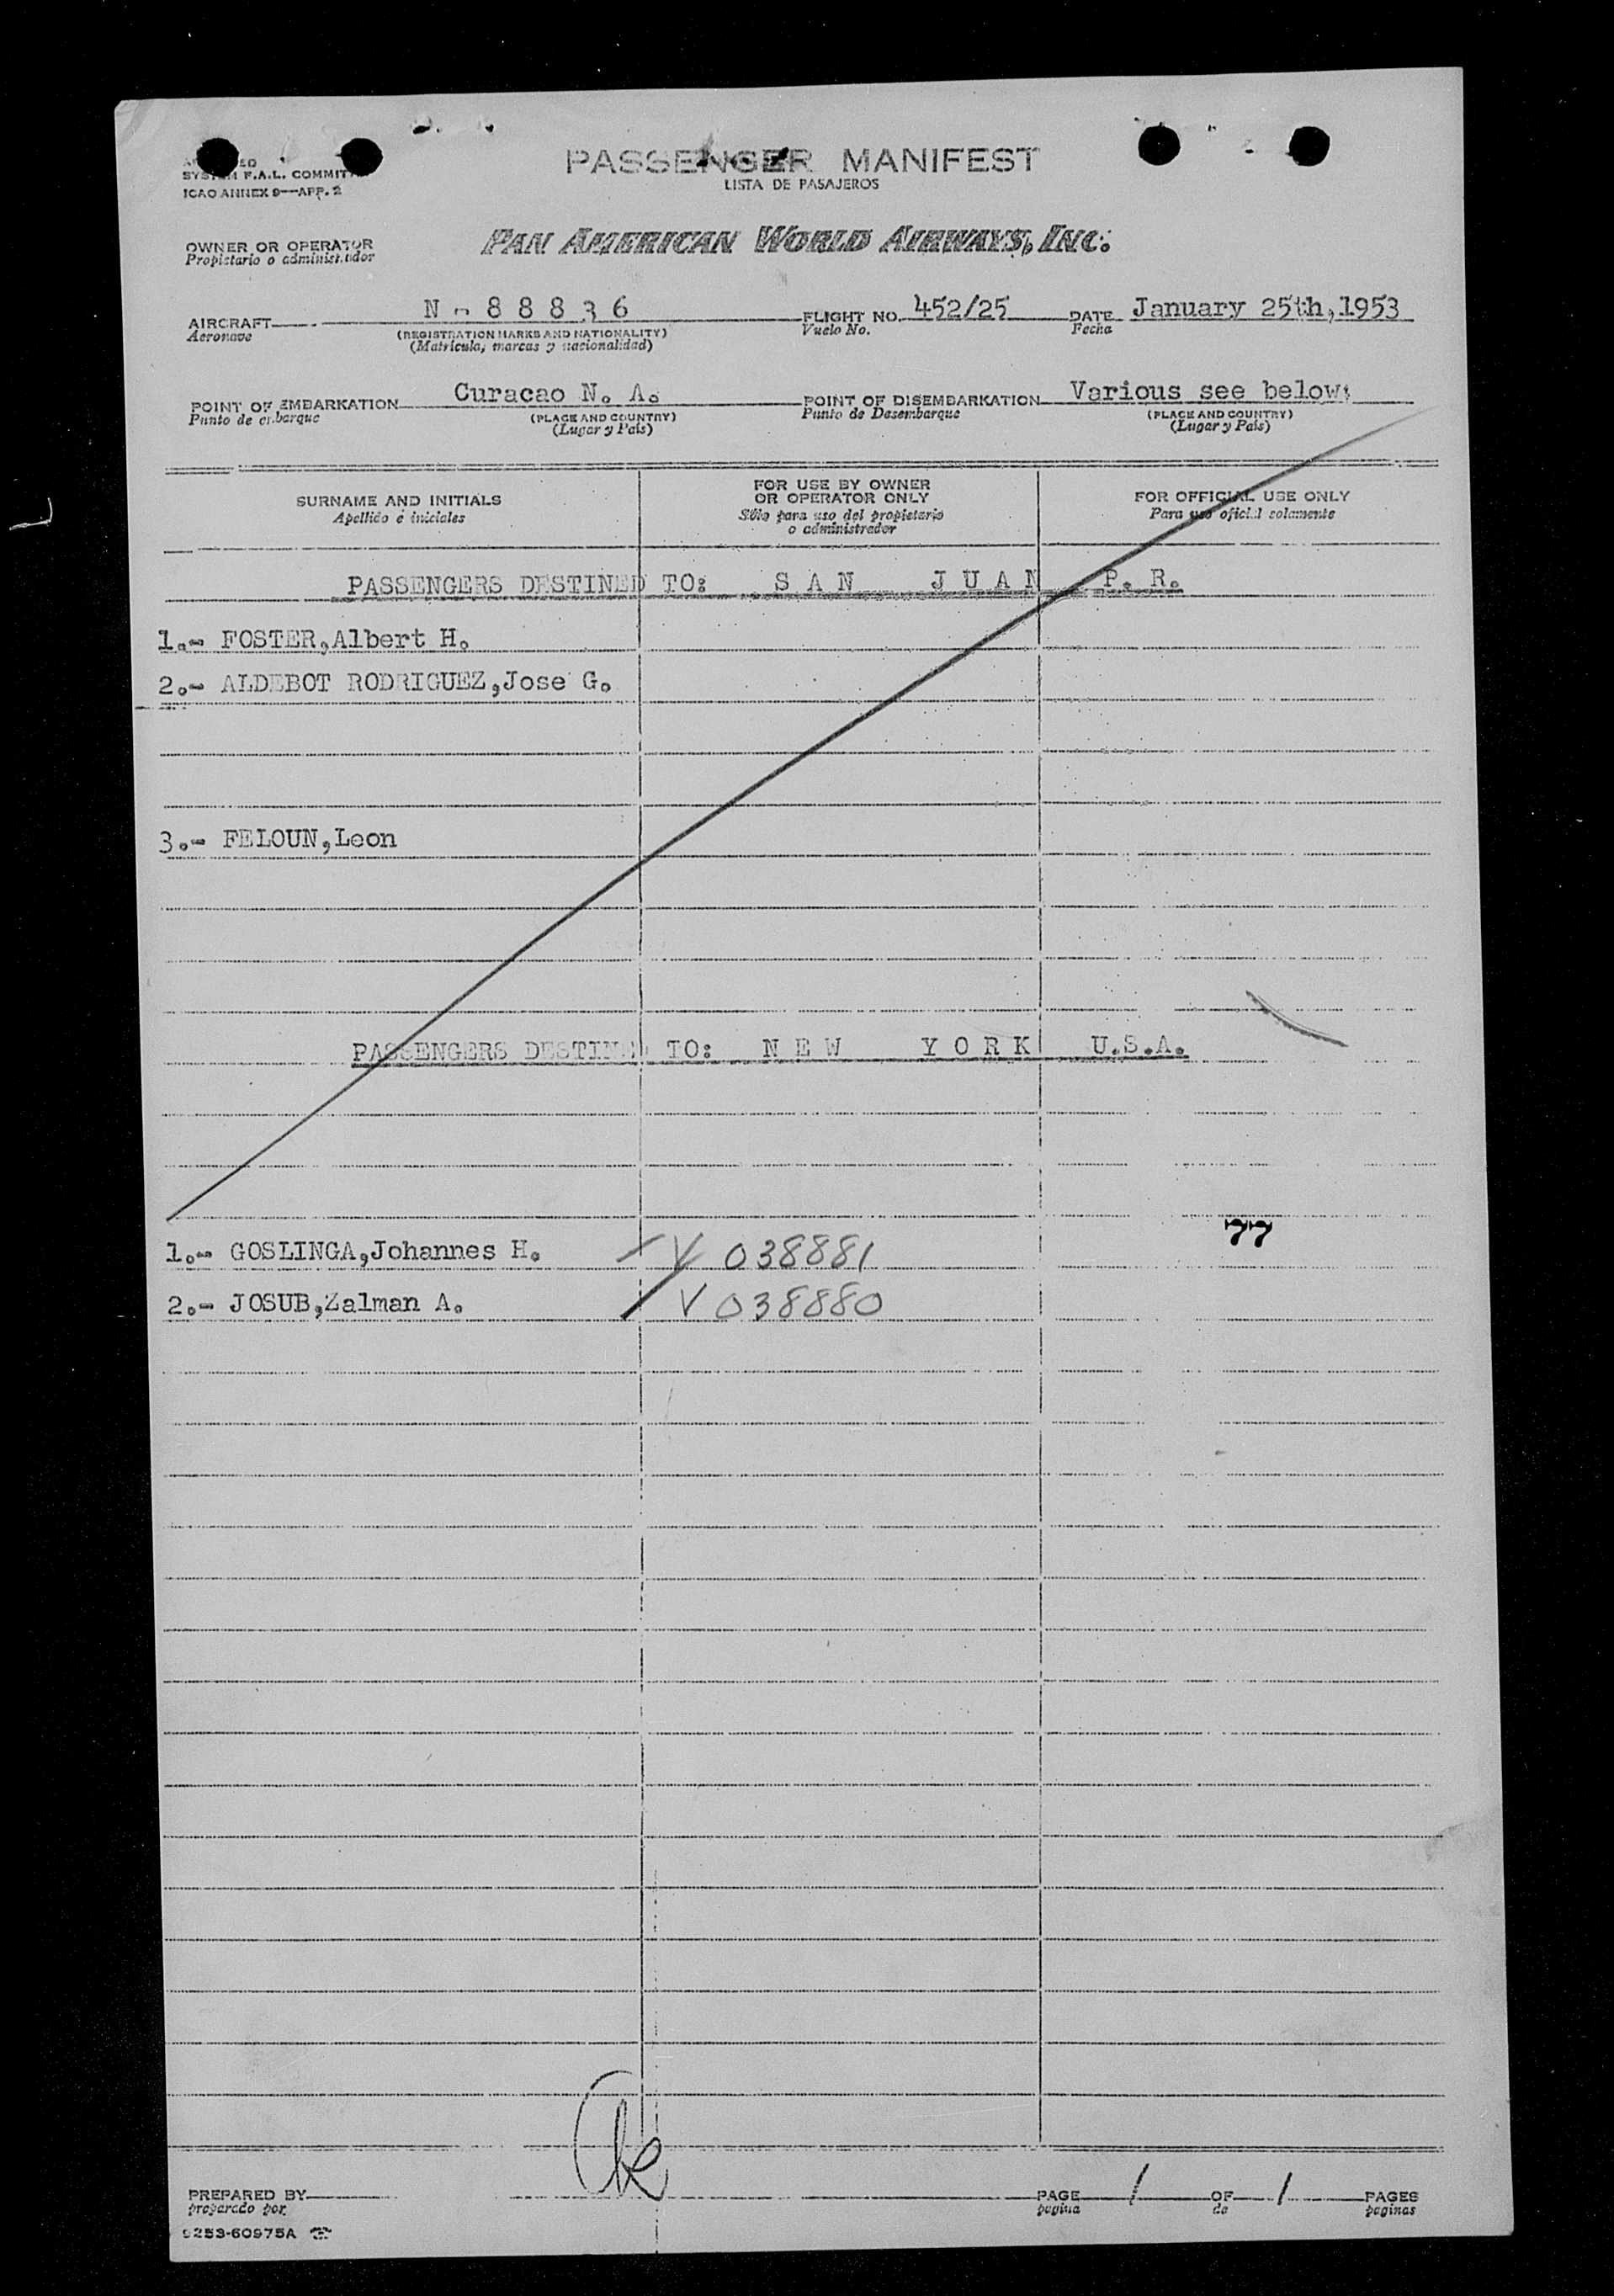 SYSTEM F.A.L. COMMITTEE
ICAO ANNEX 9—APP. 2
PASSENGER MANIFEST
LISTA DE PASAJEROS
OWNER OR OPERATOR
Propietario o administrador
PAN AMERICAN WORLD AIRWAYS, INC.
AIRCRAFT N - 8 8 8 3 6 FLIGHT NO. 452/25 DATE January 25th,1953
Aeronave (REGISTRATION MARKS AND NATIONALITY) Vuelo No. Fecha
(Matricula, marcas y nacionalidad)
POINT OF EMBARKATION Curacao N. A. POINT OF DISEMBARKATION Various see below:
Punto de embarque (PLACE AND COUNTRY) Punto de Desembarque (PLACE AND COUNTRY)
(Lugar y País) (Lugar y País)
SURNAME AND INITIALS
Apellido e iniciales
FOR USE BY OWNER
OR OPERATOR ONLY
Sólo para uso del propietario
o administrador
FOR OFFICIAL USE ONLY
Para uso oficial solamente
PASSENGERS DESTINED TO: S A N J U A N P. R.
1.- FOSTER,Albert H.
2.- ALDEBOT RODRIGUEZ,Jose G.
3.- FELOUN,Leon
PASSENGERS DESTINED TO: N E W Y O R K U.S.A.
77
1.- GOSLINGA,Johannes H. V 038881
2.- JOSUB,Zalman A. V 038880
PREPARED BY PAGE 1 OF 1 PAGES
preparado por pagina de paginas
9253-60975A